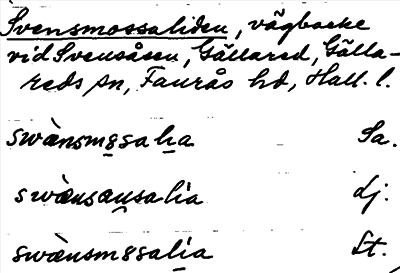 Svensmossaliden, vägbacke
vid Svensåsen, Gällared, Gälla-
reds sn, Faurås hd, Hall. l.
swànsmɞsaliа Sa.
swænsɑu̯salia dj.
swænsmɞsalia St.